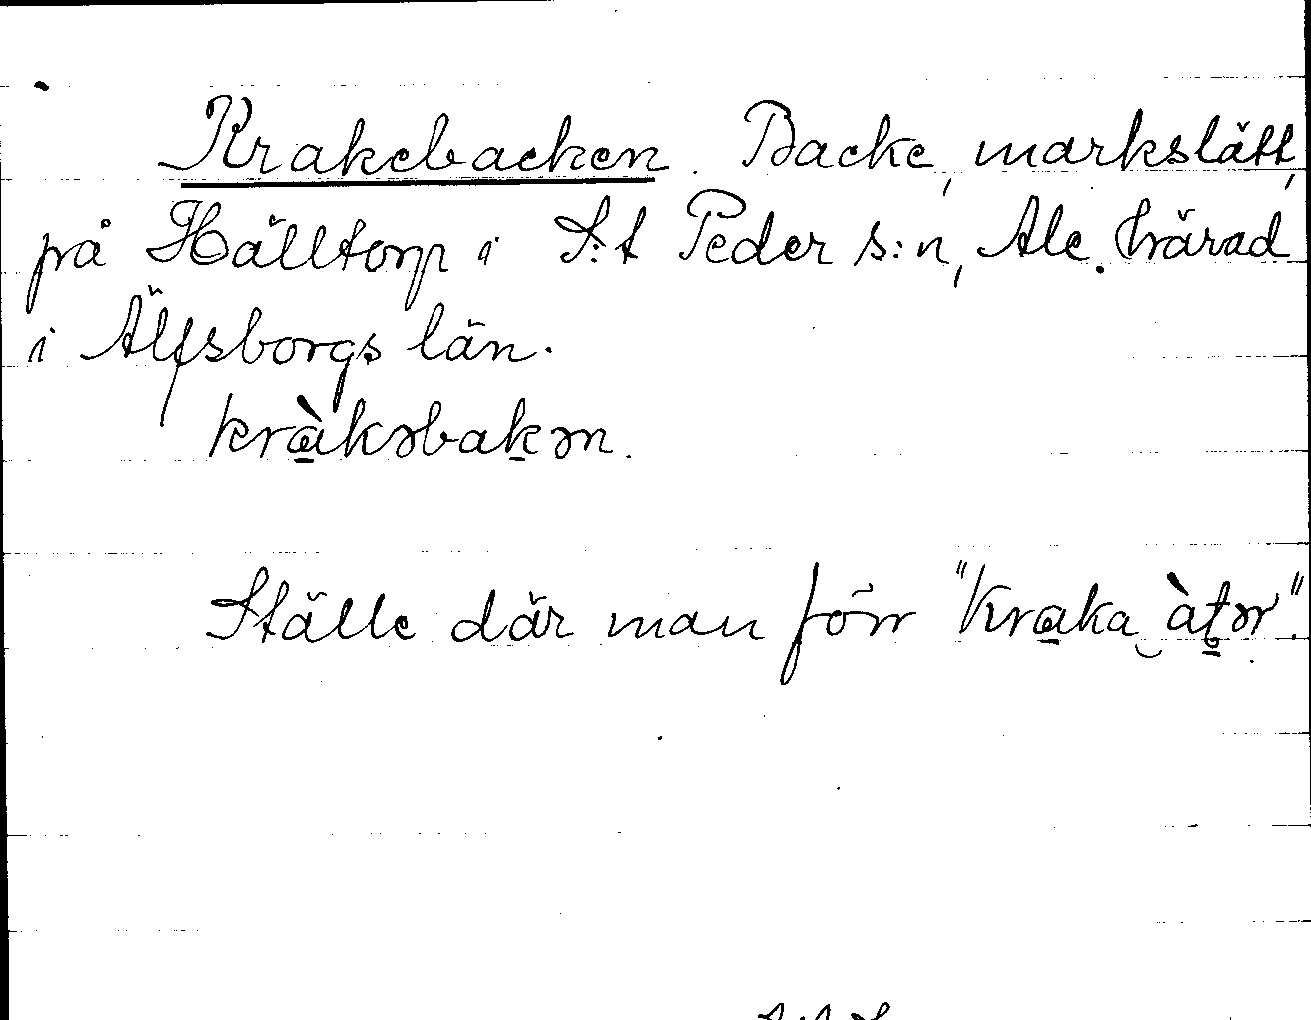 Krakebacken. Backe, markslätt,
på Hälltorp i S:t Peder s:n, Ale härad
i Älfsborgs län.
krà̱kəbaḵən.
Ställe där man förr "kra̱ka‿àṯər".